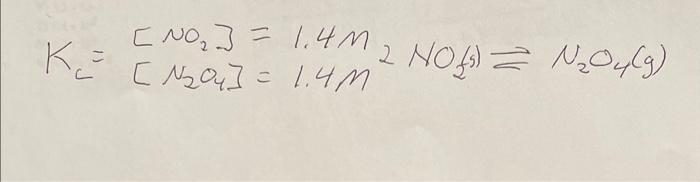 K_c = [NO₂] = 1.4M 2 NO₂(g) ⇌ N₂O₄(g)
[N₂O₄] = 1.4M